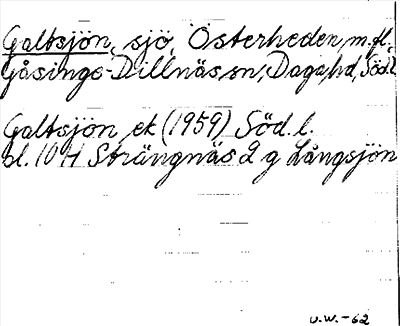 Galtsjön, sjö, Österheden, m.fl.,
Gåsinge-Dillnäs sn, Daga hd, Söd.l.
Galtsjön, ek (1959) Söd. l.
bl. 10 H Strängnäs 2 g Långsjön
U.W.-62